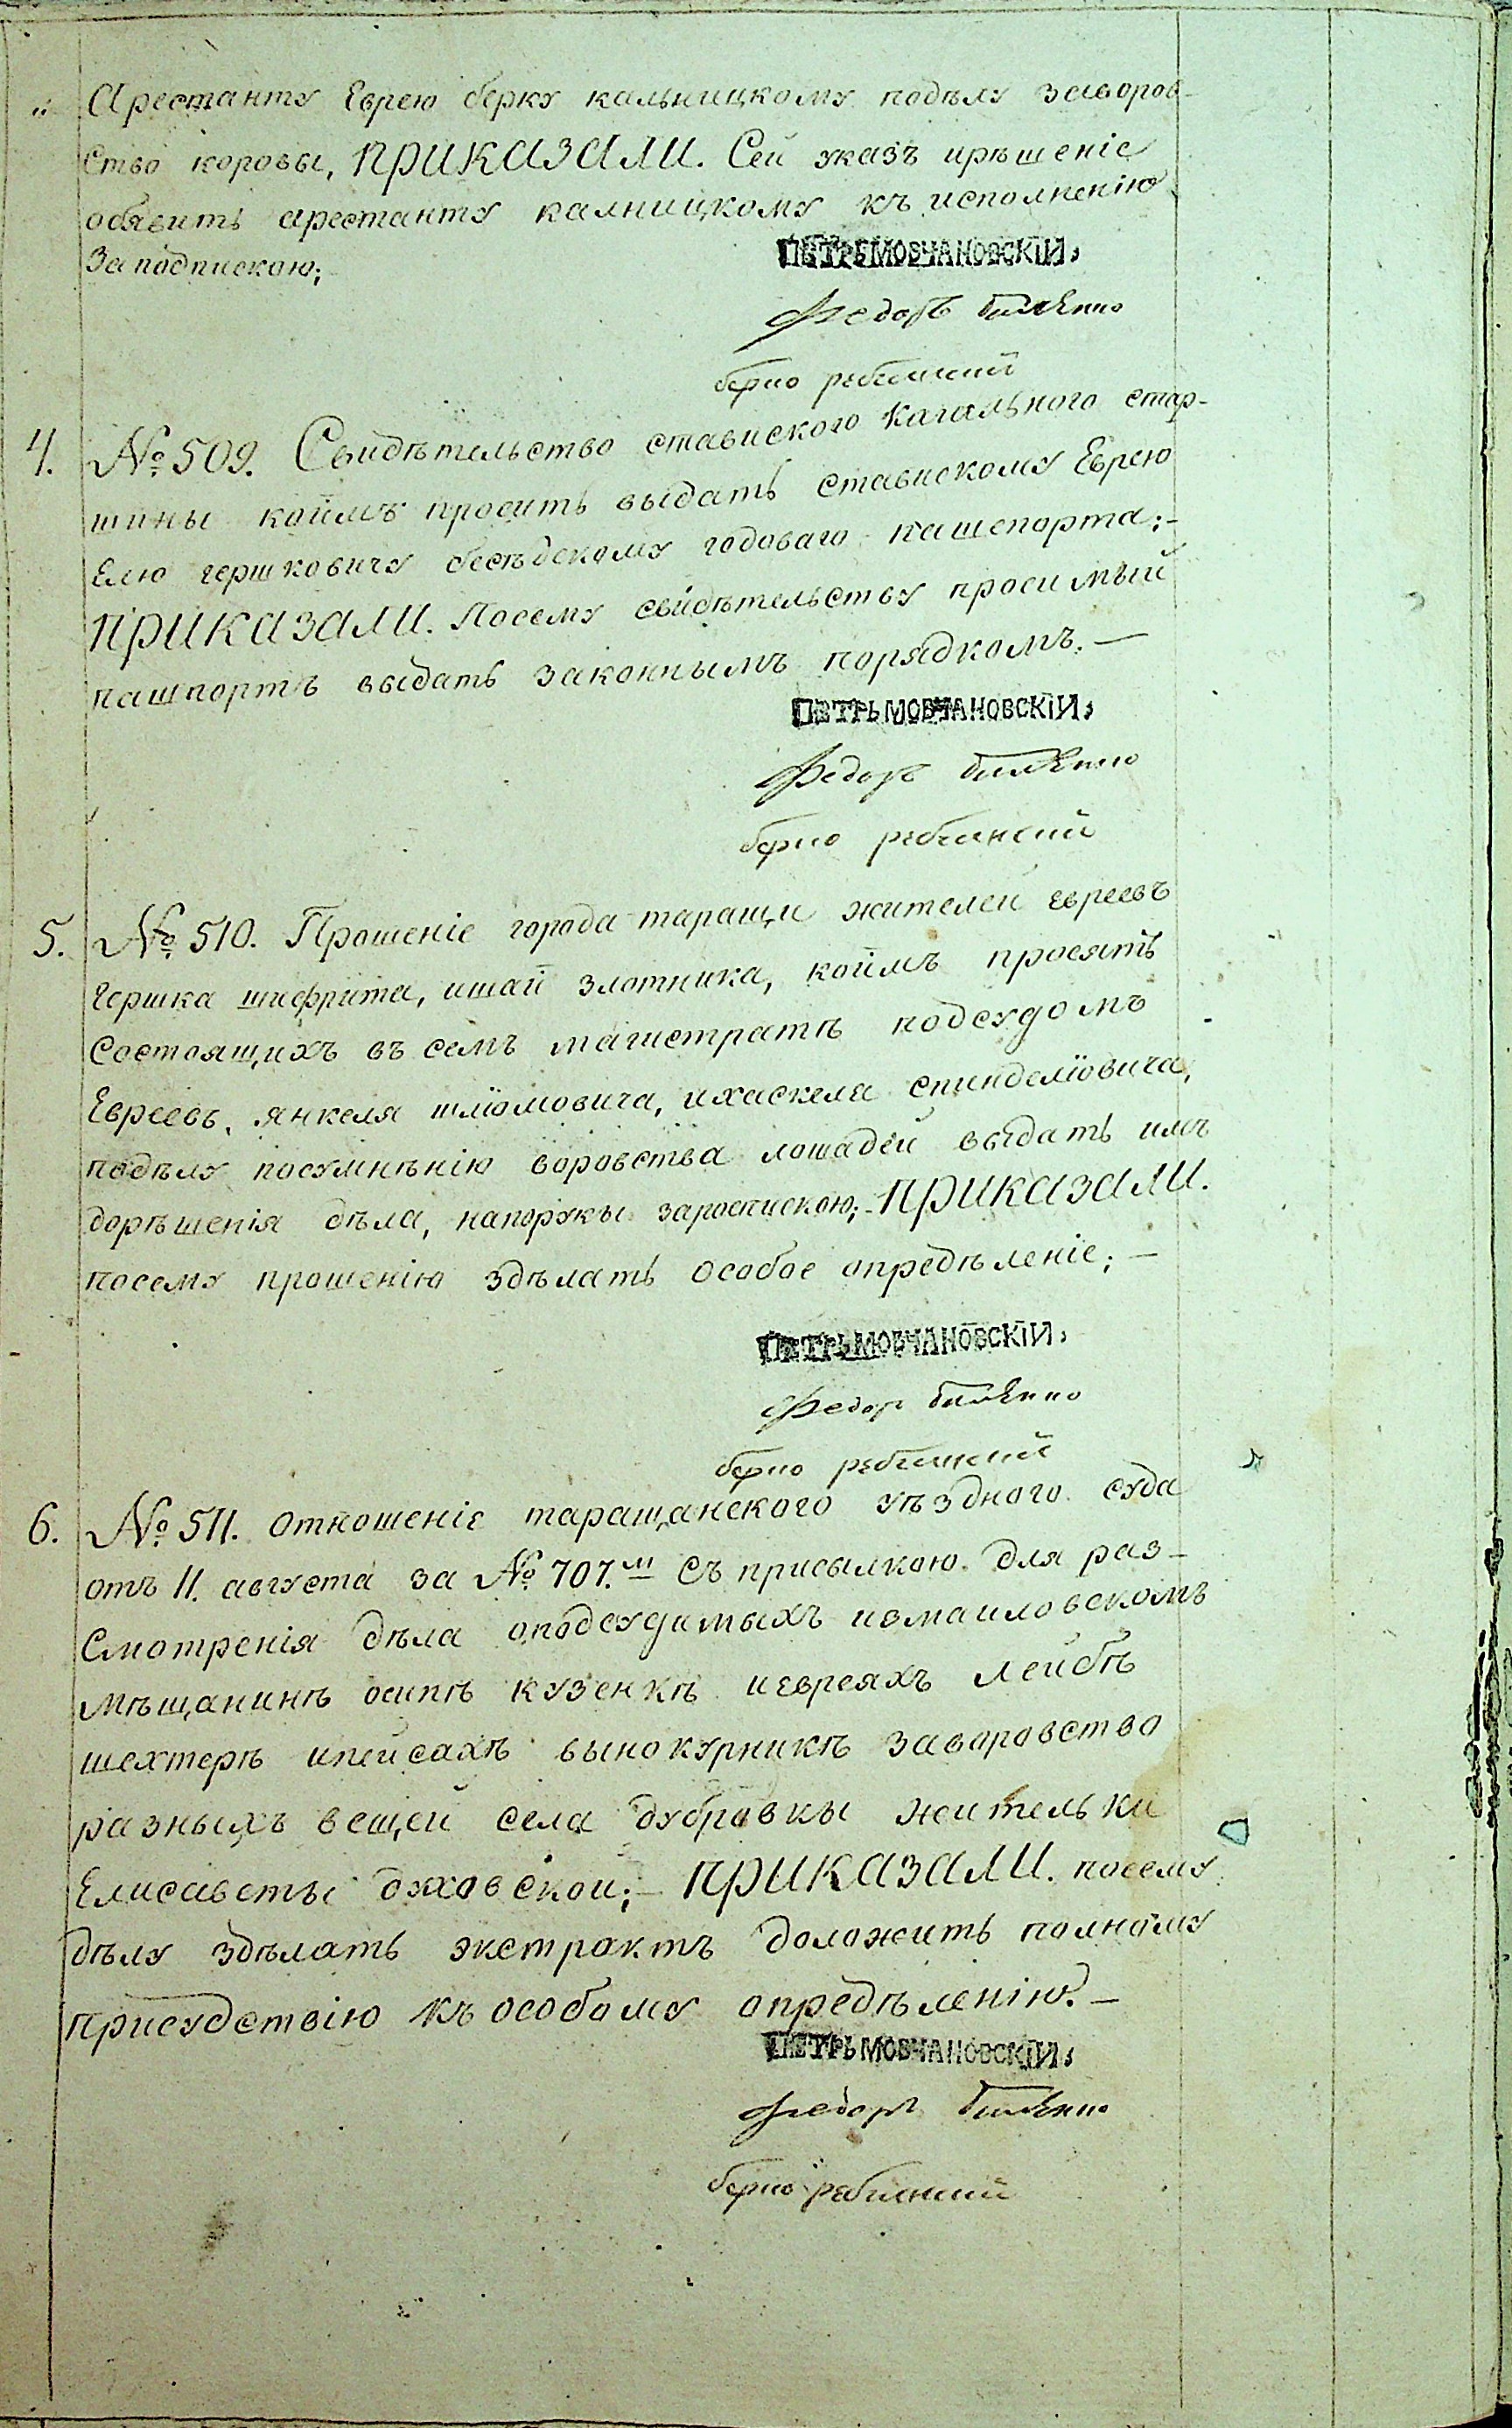 „ Арестанту Еврею берку кальницкому подѣлу заворов-
ство коровы, ПРИКАЗАЛИ. Сей указъ ирѣшеніе
обявить арестанту калницкому къ исполненію
Заподпискою;
ПЕТРЬ МОВЧАНОВСКІЙ,
Федоръ
берко
4. № 509. Свидѣтельство ставиского кагального стар-
шины коимъ просить выдать ставискому Еврею
Елю гершковичу бесѣдскому годоваго пашепорта;-
ПРИКАЗАЛИ. Посему свидѣтельству просимый
пашпортъ выдать законнымъ порядкомъ.—
ПЕТРЬ МОВЧАНОВСКІЙ,
Федоръ
берко
5. № 510. Прошеніе города таращи жителей евреевъ
Гершка шифрита, ишаи злотника, коимъ просятъ
состоящихъ въ семъ магистратѣ подсудомъ
Евреевъ, янкеля шліомовича, ихаскеля спинделіовича,
подѣлу посумнѣнію воровства лошадей выдать имъ
дорѣшенія дѣла, напоруки заросписскою;- ПРИКАЗАЛИ.
посему прошенію здѣлать особое опредѣленіе;—
ПЕТРЬ МОВЧАНОВСКІЙ,
Федор
берко
6. № 511. отношеніе таращанского уѣздного суда
отъ 11. августа за № 707.м съ присылкою для раз-
смотренія дѣла оподсудимыхъ измаиловскомъ
мѣщанинѣ осипѣ кузенкѣ иевреяхъ лейбѣ
шехтерѣ ипейсахѣ вынокурникѣ заворовство
разныхъ вещей села дубровкы жительки
Елисаветы ; ПРИКАЗАЛИ. посему
дѣлу здѣлать экстрактъ доложить полному
присудствію къ особому опредѣленію.—
ПЕТРЬ МОВЧАНОВСКІЙ,
Федоръ
берко